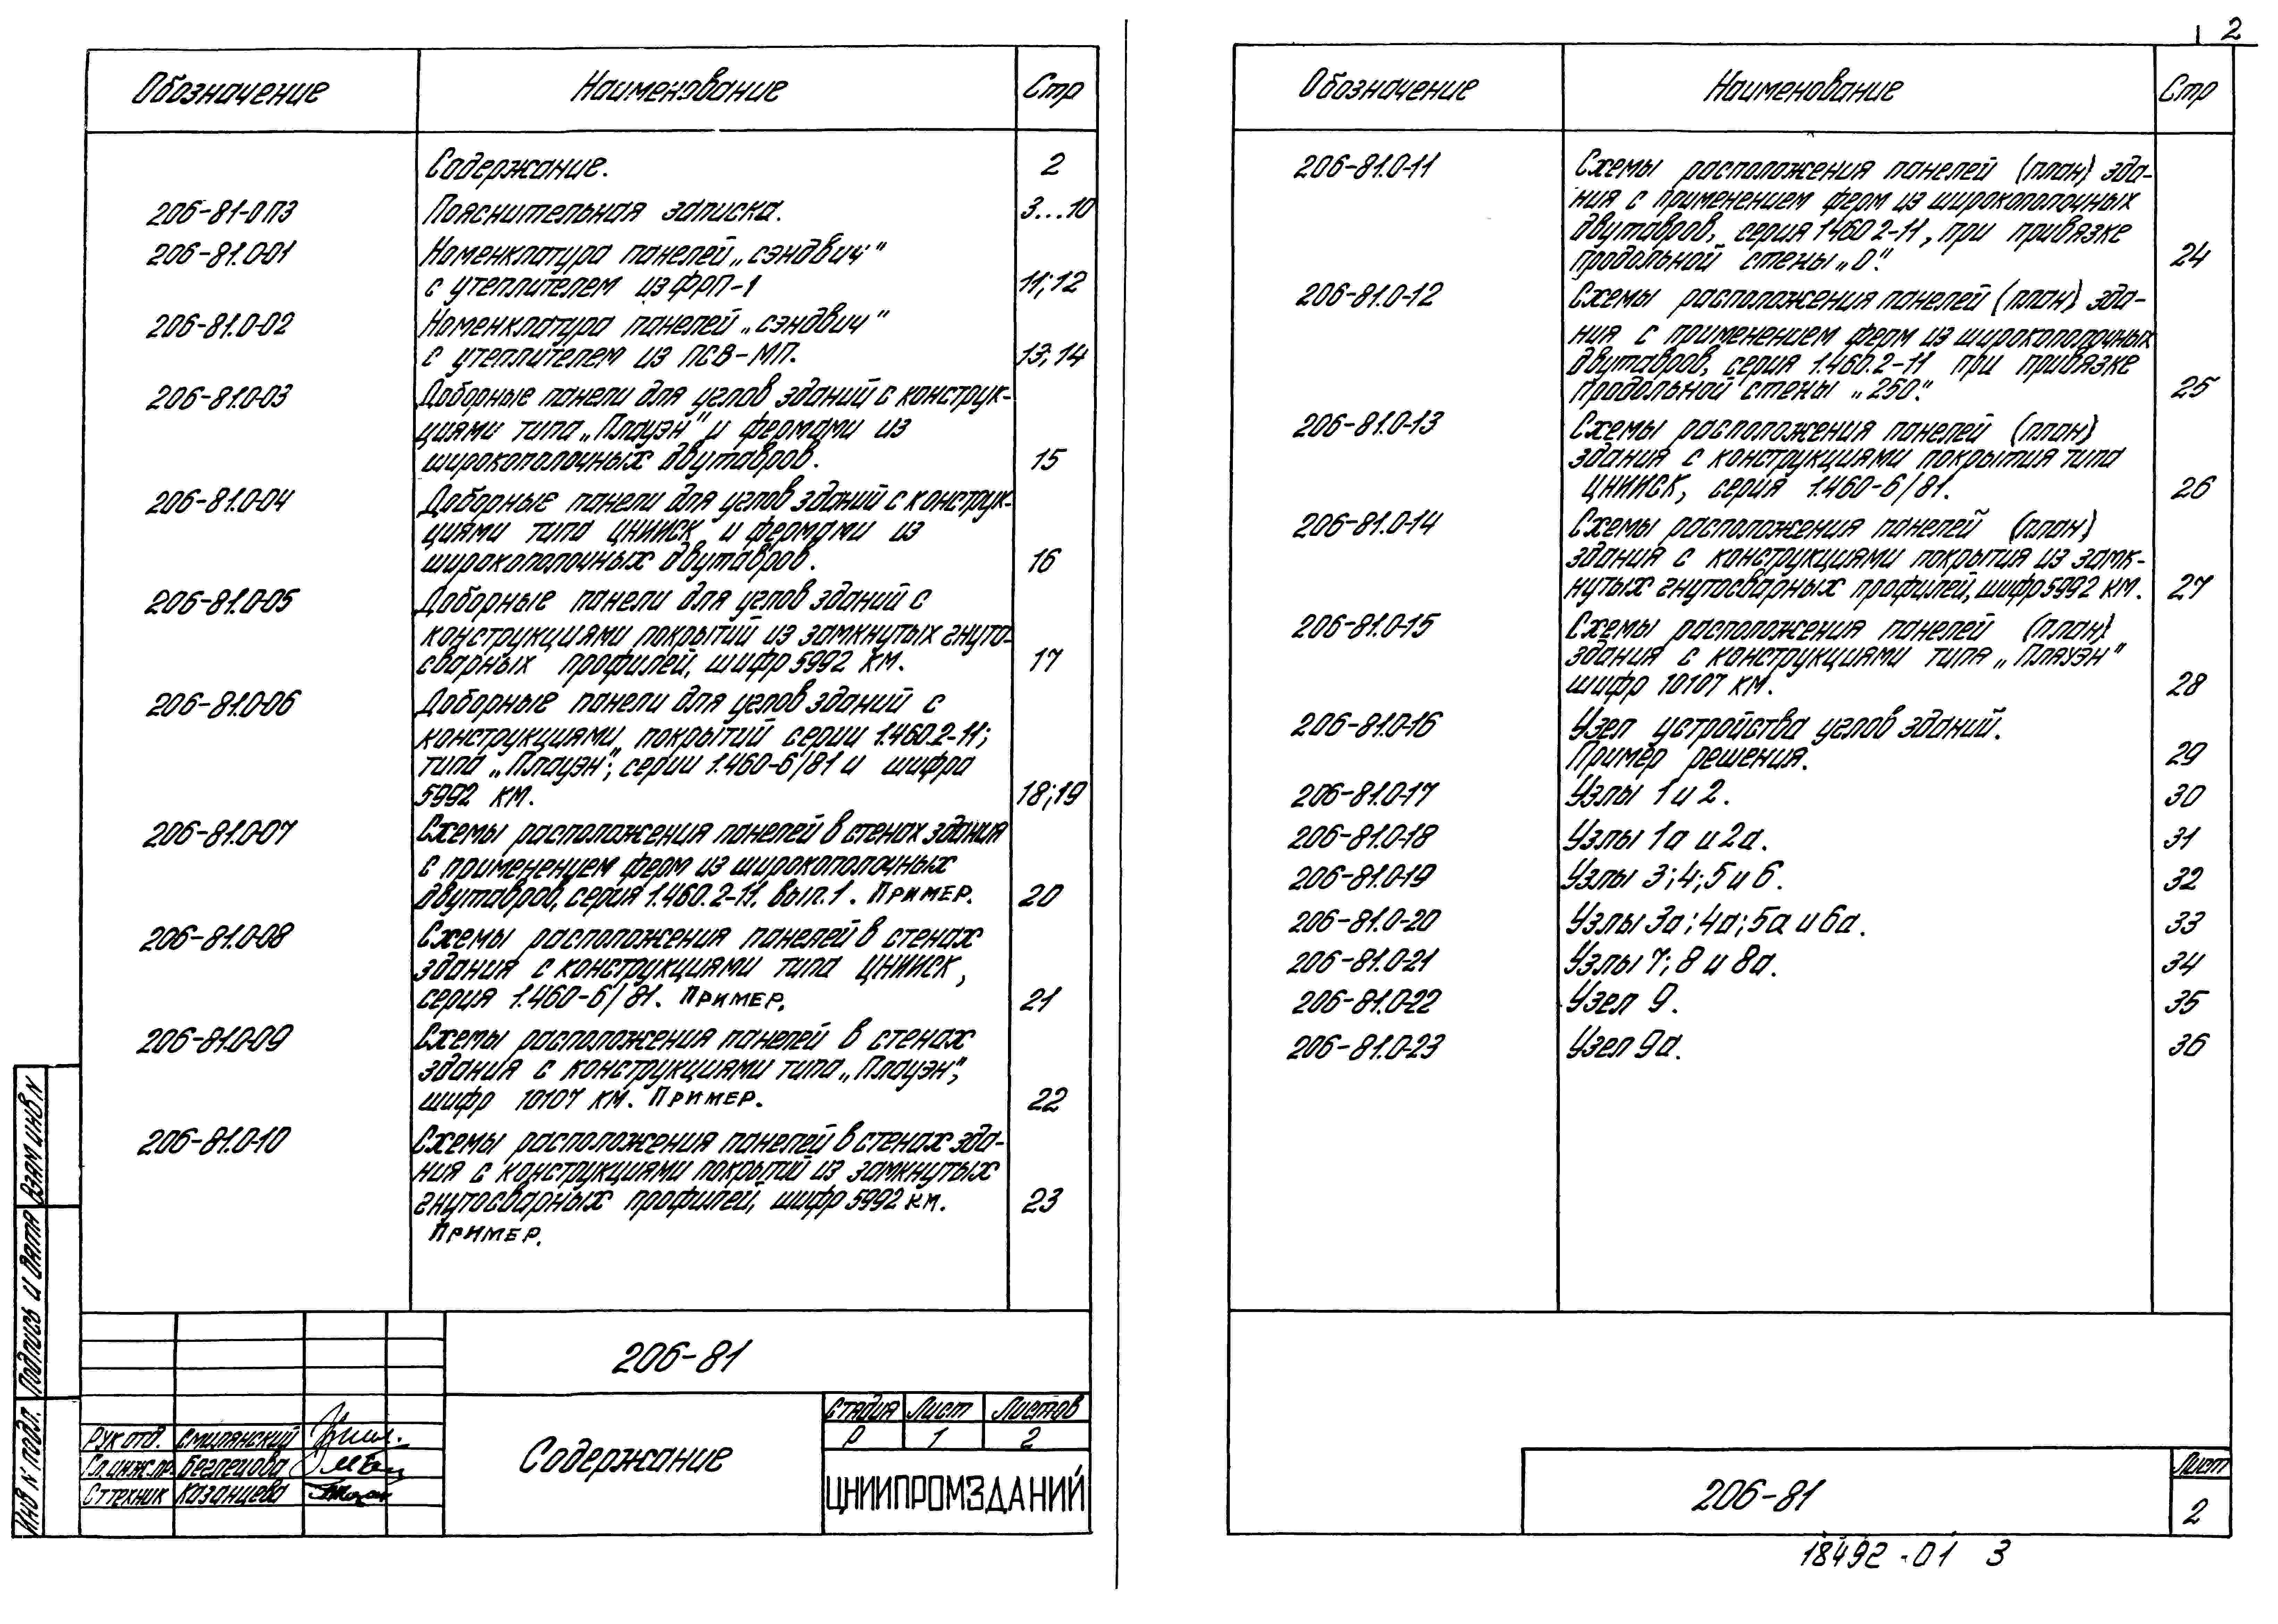 2
Обозначение Наименование Стр
Содержание. 2
206-81-0 ПЗ Пояснительная записка. 3...10
206-81.0-01 Номенклатура панелей „сэндвич"
с утеплителем из ФРП-1 11;12
206-81.0-02 Номенклатура панелей „сэндвич"
с утеплителем из ПСВ-МП. 13;14
206-81.0-03 Доборные панели для углов зданий с конструк-
циями типа „Плауэн" и фермами из
широкополочных двутавров. 15
206-81.0-04 Доборные панели для углов зданий с конструк-
циями типа ЦНИИСК и фермами из
широкополочных двутавров. 16
206-81.0-05 Доборные панели для углов зданий с
конструкциями покрытий из замкнутых гнуто-
сварных профилей, шифр 5992 КМ. 17
206-81.0-06 Доборные панели для углов зданий с
конструкциями покрытий серии 1.460.2-11;
типа „Плауэн"; серии 1.460-6/81 и шифра
5992 КМ. 18;19
206-81.0-07 Схемы расположения панелей в стенах здания
с применением ферм из широкополочных
двутавров, серия 1.460.2-11. вып.1. Пример. 20
206-81.0-08 Схемы расположения панелей в стенах
здания с конструкциями типа ЦНИИСК,
серия 1.460-6/81. Пример. 21
206-81.0-09 Схемы расположения панелей в стенах
здания с конструкциями типа „Плауэн",
шифр 10107 КМ. Пример. 22
206-81.0-10 Схемы расположения панелей в стенах зда-
ния с конструкциями покрытий из замкнутых
гнутосварных профилей, шифр 5992 КМ. 23
Пример.
206-81
Содержание
Стадия Лист Листов
Р 1 2
ЦНИИПРОМЗДАНИЙ
Рук отд. Смилянский
Гл.инж.пр. Беглецова
Ст техник Казанцева
Инв N подл. Подпись и дата Взам инв N
Обозначение Наименование Стр
206-81.0-11 Схемы расположения панелей (план) зда-
ния с применением ферм из широкополочных
двутавров, серия 1460 2-11, при привязке
продольной стены „0". 24
206-81.0-12 Схемы расположения панелей (план) зда-
ния с применением ферм из широкополочных
двутавров, серия 1.460.2-11 при привязке
продольной стены „250". 25
206-81.0-13 Схемы расположения панелей (план)
здания с конструкциями покрытия типа
ЦНИИСК, серия 1.460-6/81. 26
206-81.0-14 Схемы расположения панелей (план)
здания с конструкциями покрытия из замк-
нутых гнутосварных профилей, шифр 5992 КМ. 27
206-81.0-15 Схемы расположения панелей (план)
здания с конструкциями типа „Плауэн"
шифр 10107 КМ. 28
206-81.0-16 Узел устройства углов зданий.
Пример решения. 29
206-81.0-17 Узлы 1 и 2. 30
206-81.0-18 Узлы 1а и 2а. 31
206-81.0-19 Узлы 3;4;5 и 6. 32
206-81.0-20 Узлы 3а;4а;5а и 6а. 33
206-81.0-21 Узлы 7;8 и 8а. 34
206-81.0-22 Узел 9. 35
206-81.0-23 Узел 9а. 36
206-81
Лист
2
18492-01 3